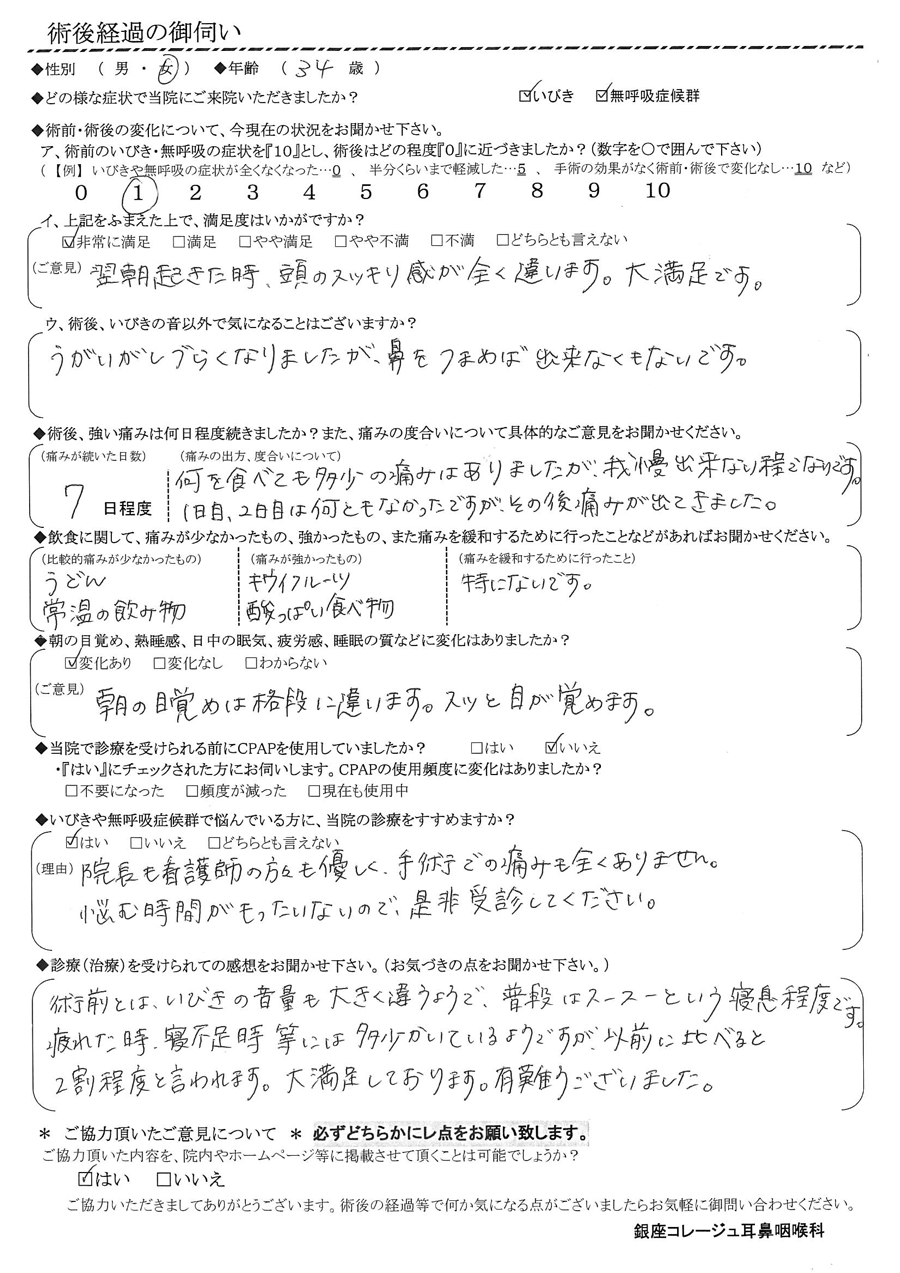 術後経過の御伺い
◆性別　（ 男 ・ 女 ）　◆年齢　（ 34 歳 ）
◆どの様な症状で当院にご来院いただきましたか？　☑いびき　☑無呼吸症候群
◆術前・術後の変化について、今現在の状況をお聞かせ下さい。
ア、術前のいびき・無呼吸の症状を『10』とし、術後はどの程度『0』に近づきましたか？（数字を○で囲んで下さい）
（【例】 いびきや無呼吸の症状が全くなくなった…0 、 半分くらいまで軽減した…5 、 手術の効果がなく術前・術後で変化なし…10 など）
0　1　2　3　4　5　6　7　8　9　10
イ、上記をふまえた上で、満足度はいかがですか？
☑非常に満足　□満足　□やや満足　□やや不満　□不満　□どちらとも言えない
（ご意見） 翌朝起きた時、頭のスッキリ感が全く違います。大満足です。
ウ、術後、いびきの音以外で気になることはございますか？
うがいがしづらくなりましたが、鼻をつまめば出来なくもないです。
◆術後、強い痛みは何日程度続きましたか？また、痛みの度合いについて具体的なご意見をお聞かせください。
（痛みが続いた日数）　（痛みの出方、度合いについて）
何を食べても多少の痛みはありましたが、我慢出来ない程でないです。
7 日程度　1日目、2日目は何ともなかったですが、その後痛みが出てきました。
◆飲食に関して、痛みが少なかったもの、強かったもの、また痛みを緩和するために行ったことなどがあればお聞かせください。
（比較的痛みが少なかったもの）　（痛みが強かったもの）　（痛みを緩和するために行ったこと）
うどん　キウイフルーツ　特にないです。
常温の飲み物　酸っぱい食べ物
◆朝の目覚め、熟睡感、日中の眠気、疲労感、睡眠の質などに変化はありましたか？
☑変化あり　□変化なし　□わからない
（ご意見） 朝の目覚めは格段に違います。スッと目が覚めます。
◆当院で診療を受けられる前にCPAPを使用していましたか？　□はい　☑いいえ
・『はい』にチェックされた方にお伺いします。CPAPの使用頻度に変化はありましたか？
□不要になった　□頻度が減った　□現在も使用中
◆いびきや無呼吸症候群で悩んでいる方に、当院の診療をすすめますか？
☑はい　□いいえ　□どちらとも言えない
（理由） 院長も看護師の方々も優しく、手術での痛みも全くありません。
悩む時間がもったいないので、是非受診してください。
◆診療（治療）を受けられての感想をお聞かせ下さい。（お気づきの点をお聞かせ下さい。）
術前とは、いびきの音量も大きく違うようで、普段はスースーという寝息程度です。
疲れた時、寝不足時等には多少かいているようですが、以前に比べると
2割程度と言われます。大満足しております。有難うございました。
＊ ご協力頂いたご意見について ＊ 必ずどちらかにレ点をお願い致します。
ご協力頂いた内容を、院内やホームページ等に掲載させて頂くことは可能でしょうか？
☑はい　□いいえ
ご協力いただきましてありがとうございます。術後の経過等で何か気になる点がございましたらお気軽に御問い合わせください。
銀座コレージュ耳鼻咽喉科